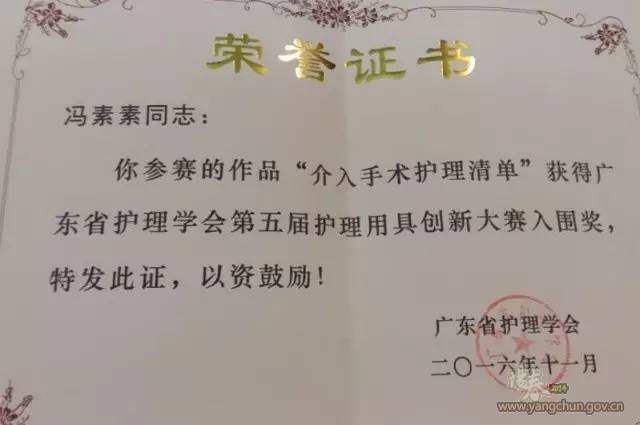 荣誉证书
冯素素同志：
你参赛的作品“介入手术护理清单”获得广
东省护理学会第五届护理用具创新大赛入围奖，
特发此证，以资鼓励！
广东省护理学会
二〇一六年十一月
阳春
2014
www.yangchun.gov.cn